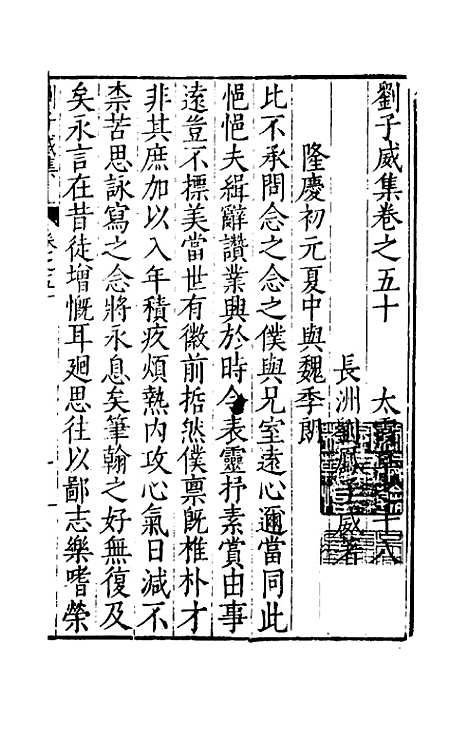 劉子威集卷之五十　太
長洲劉鳳子威著
隆慶初元夏中與魏季朗
比不承問念之念之僕與兄室遠心邇當同此
悒悒夫緝辭讚業興於時令表靈抒素賞由事
遠豈不摽美當世有徽前哲然僕禀旣椎朴才
非其庶加以入年積疚煩熱内攻心氣日減不
柰苦思詠寫之念將永息矣筆翰之好無復及
矣永言在昔徒增慨耳廻思往以鄙志樂嗜榮
劉子威集